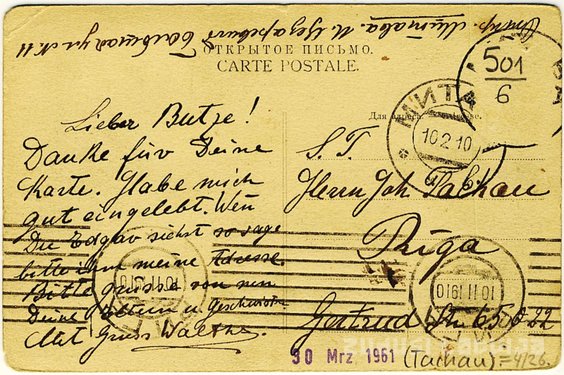 Отпр. Митава. И. Цезаревич Большая ул. №11
ОТКРЫТОЕ ПИСЬМО.
CARTE POSTALE.
Для адреса
501
6
МИТА
10 2 10
Lieber Butze!
Danke für Deine
Karte. Habe mich
gut eingelebt. Wen
Du Edgar siehst so sage
bitte ihm meine Adresse.
Bitte grüsse von mir
Deine Eltern u. Geschwister
Mit Gruss Walther
S. T.
Herrn Joh. Tachau
Riga
10 II 1910
Gertrud Str. 65 Q. 22
30 Mrz 1961
(Tachau)
=4/26.